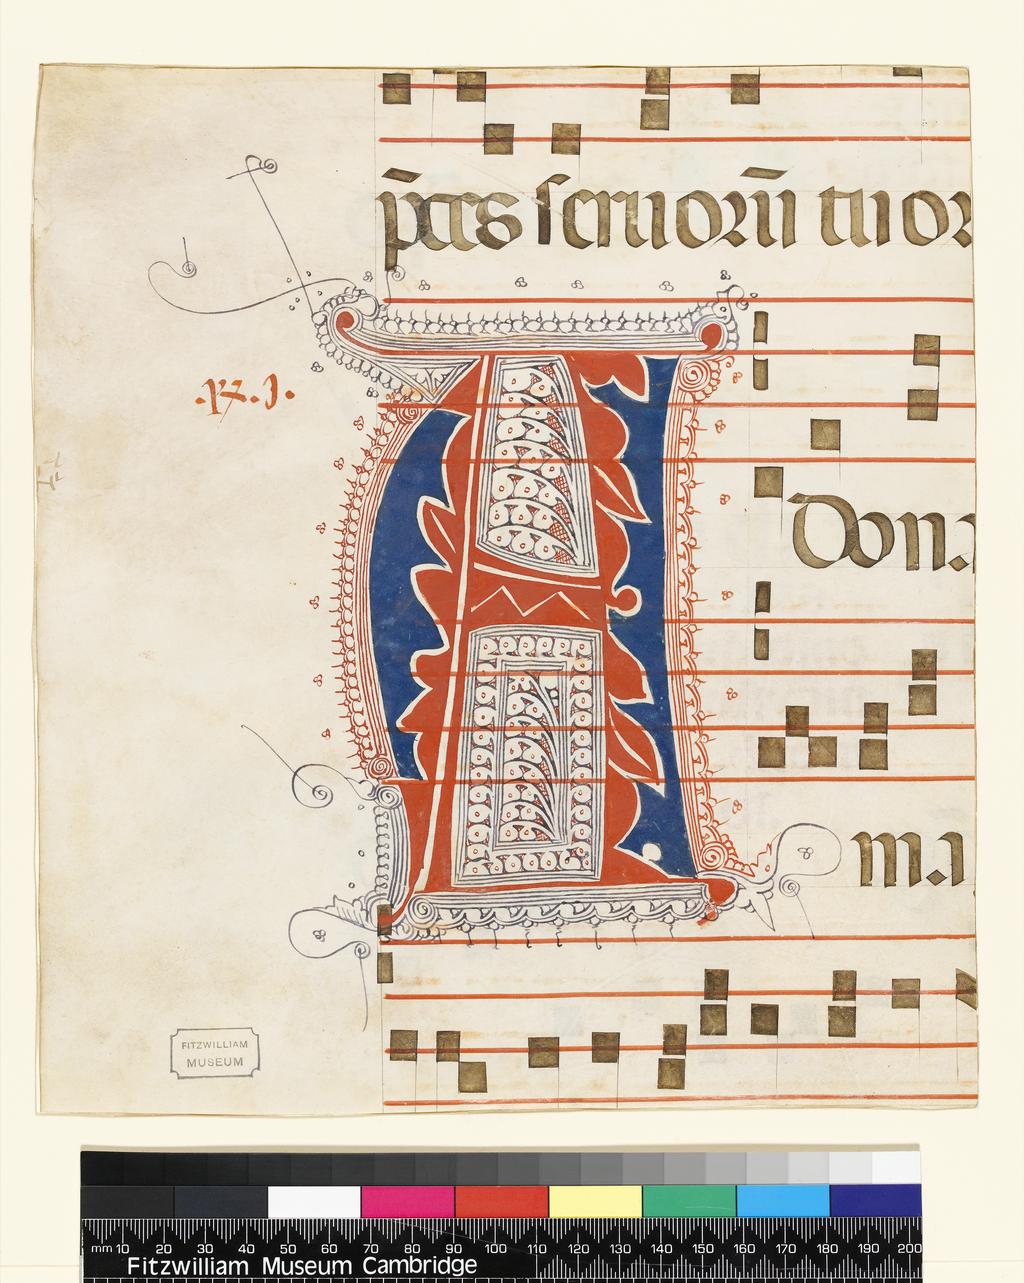 p̄ces seruorū tuor
.ps. j.
A
Don.
ma
FITZWILLIAM
MUSEUM
mm 10 20 30 40 50 60 70 80 90 100 110 120 130 140 150 160 170 180 190 200
Fitzwilliam Museum Cambridge